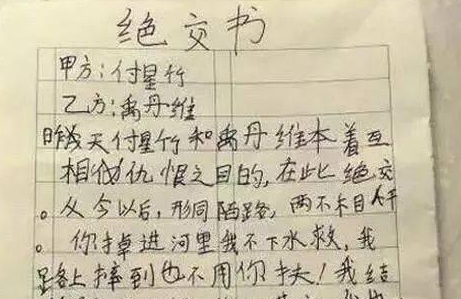 绝交书
甲方:付星竹
乙方:禹丹维
昨天付星竹和禹丹维本着互
相仇恨之目的,在此绝交
。从今以后,形同陌路,两不相干
。你掉进河里我不下水救,我
路上摔到也不用你扶!我结